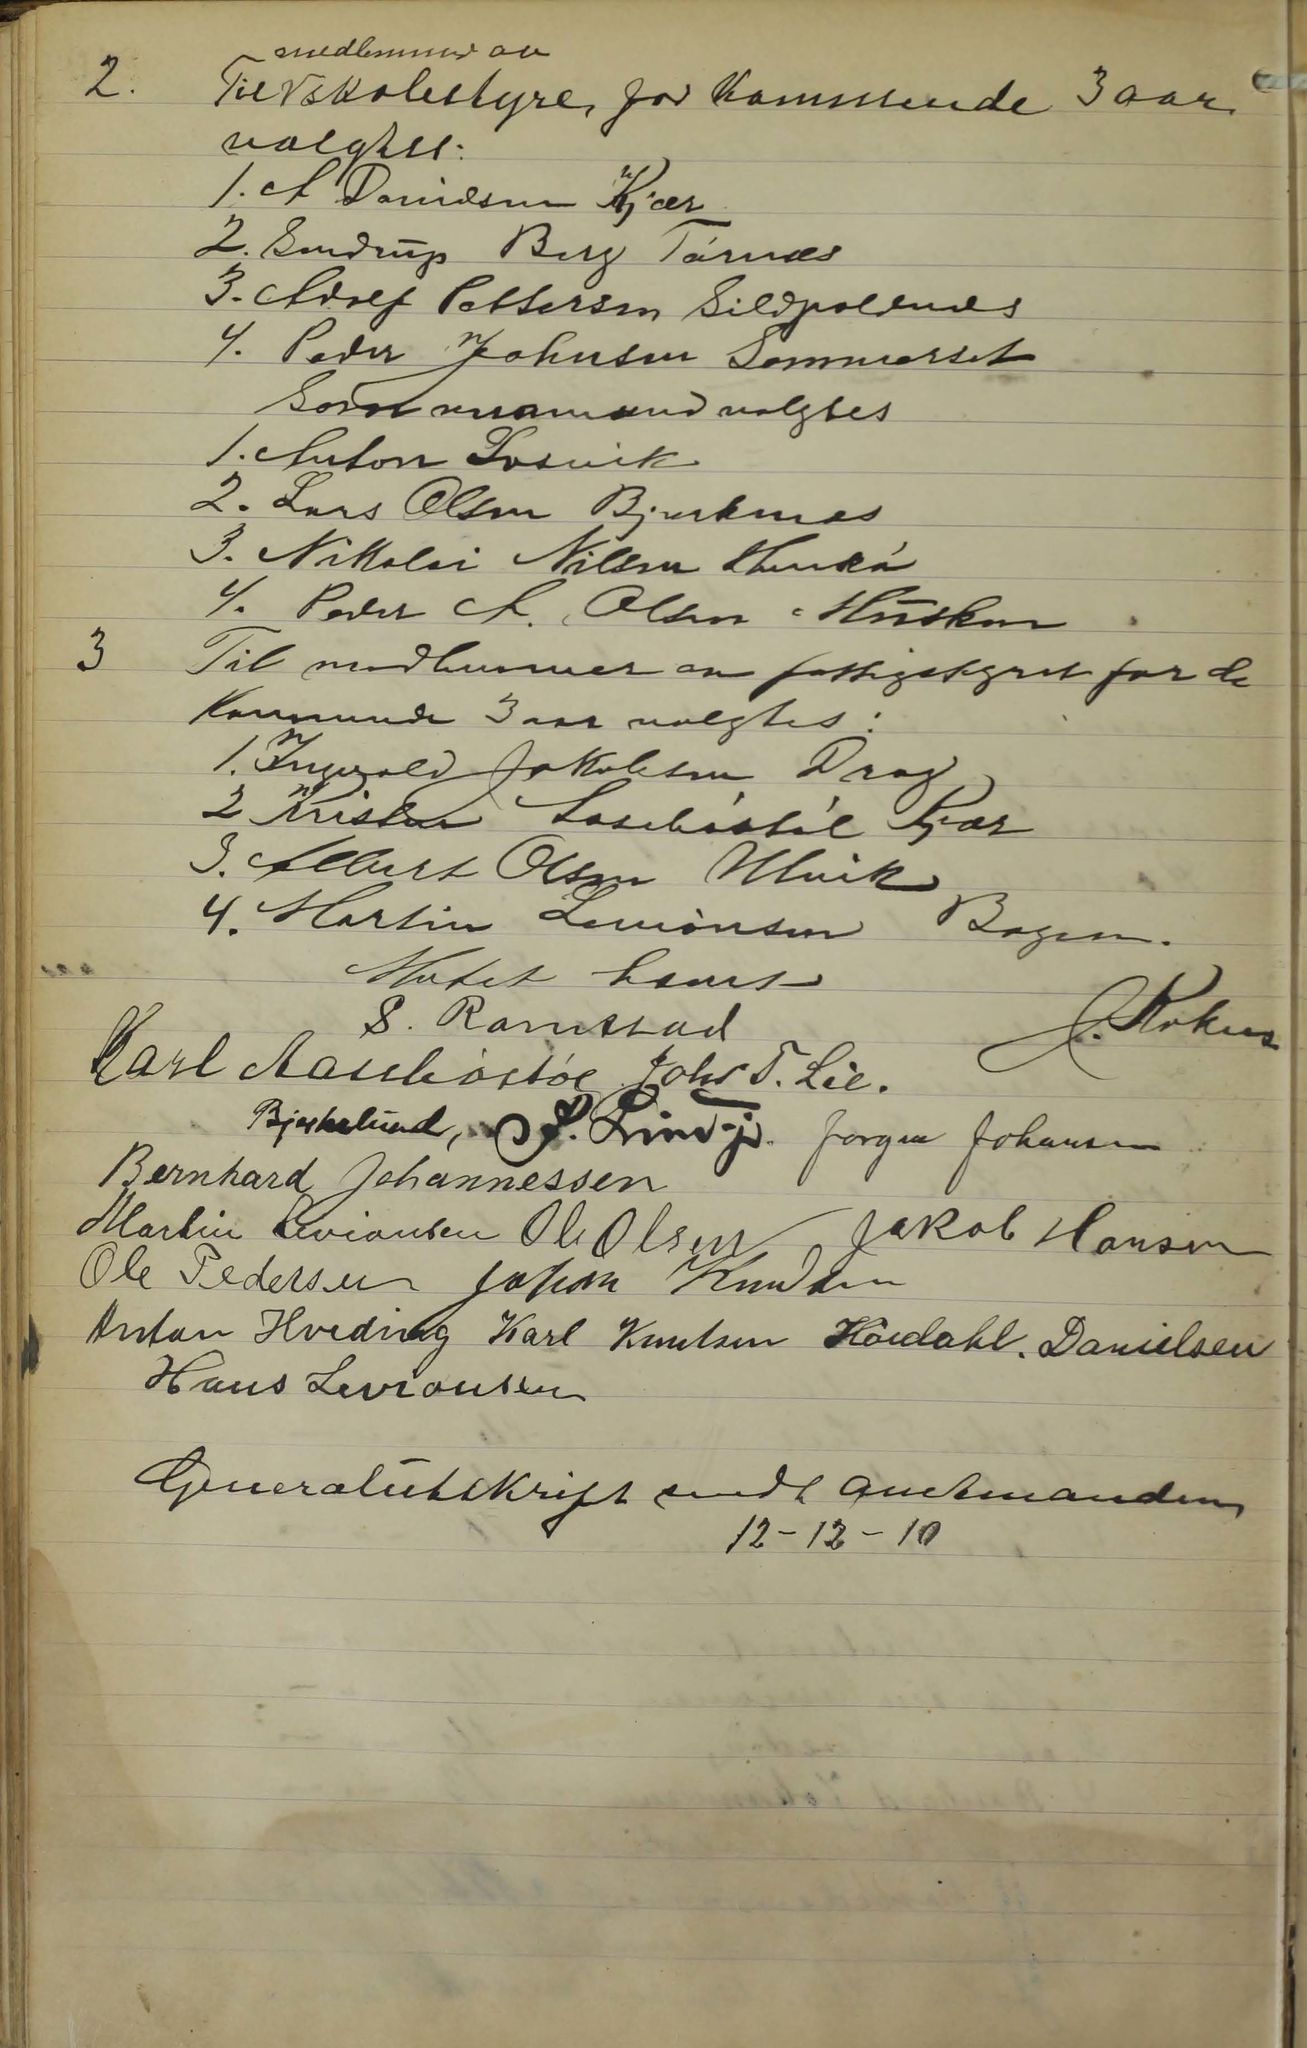 medlemmer av
2. Til Skolestyre, for kommende 3 aar
valgtes:
1. A Davidsen Kjær
2. Sendrup Berg Tårnes
3. Adolf Pettersen Sildpolnes
4. Peder Johnsen Sommerset
Som varamænd valgtes
1. Anton Losvik
2. Lars Olsen Bjerknes
3. Nikolai Nilsen
4. Peder A. Olsen Musken
3 Til medlemmer av fattigstyret for de
kommende 3 aar valgtes:
1. Ingvald Jakobsen Drag
2 Kristen Kjær
3. Albert Olsen Ulvik
4. Martin Levionsen Bogen.
Møtet hævet
S. Ramstad
Karl John T. Lie.
Bjerkelund, Jørgen Johansen
Bernhard Johannessen
Martin Levionsen Ole Olsen Jakob Hansen
Ole Pedersen Johan Knudsen
Anton Hveding Karl Knutsen Høidahl. Danielsen
Hans Levionsen
Generalutskrift sendt amtmanden
12-12-10